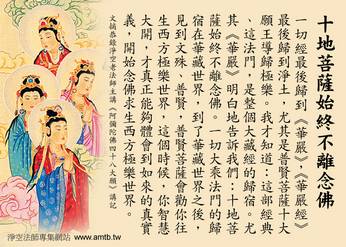 十地菩薩始終不離念佛
一切經最後歸到《華嚴》，《華嚴經》
最後歸到淨土，尤其是普賢菩薩十大
願王導歸極樂。我才知道：這部經典
、這法門，是整個大藏經的歸宿。尤
其《華嚴》明白地告訴我們：十地菩
薩始終不離念佛。一切大乘法門的歸
宿在華藏世界，到了華藏世界之後，
見到文殊、普賢，普賢菩薩會勸你往
生西方極樂世界，這個時候，你智慧
大開，才真正能夠體會到如來的真實
義，開始念佛求生西方極樂世界。
文稿恭錄淨空老法師主講《阿彌陀佛四十八大願》講記
淨空法師專集網站 www.amtb.tw